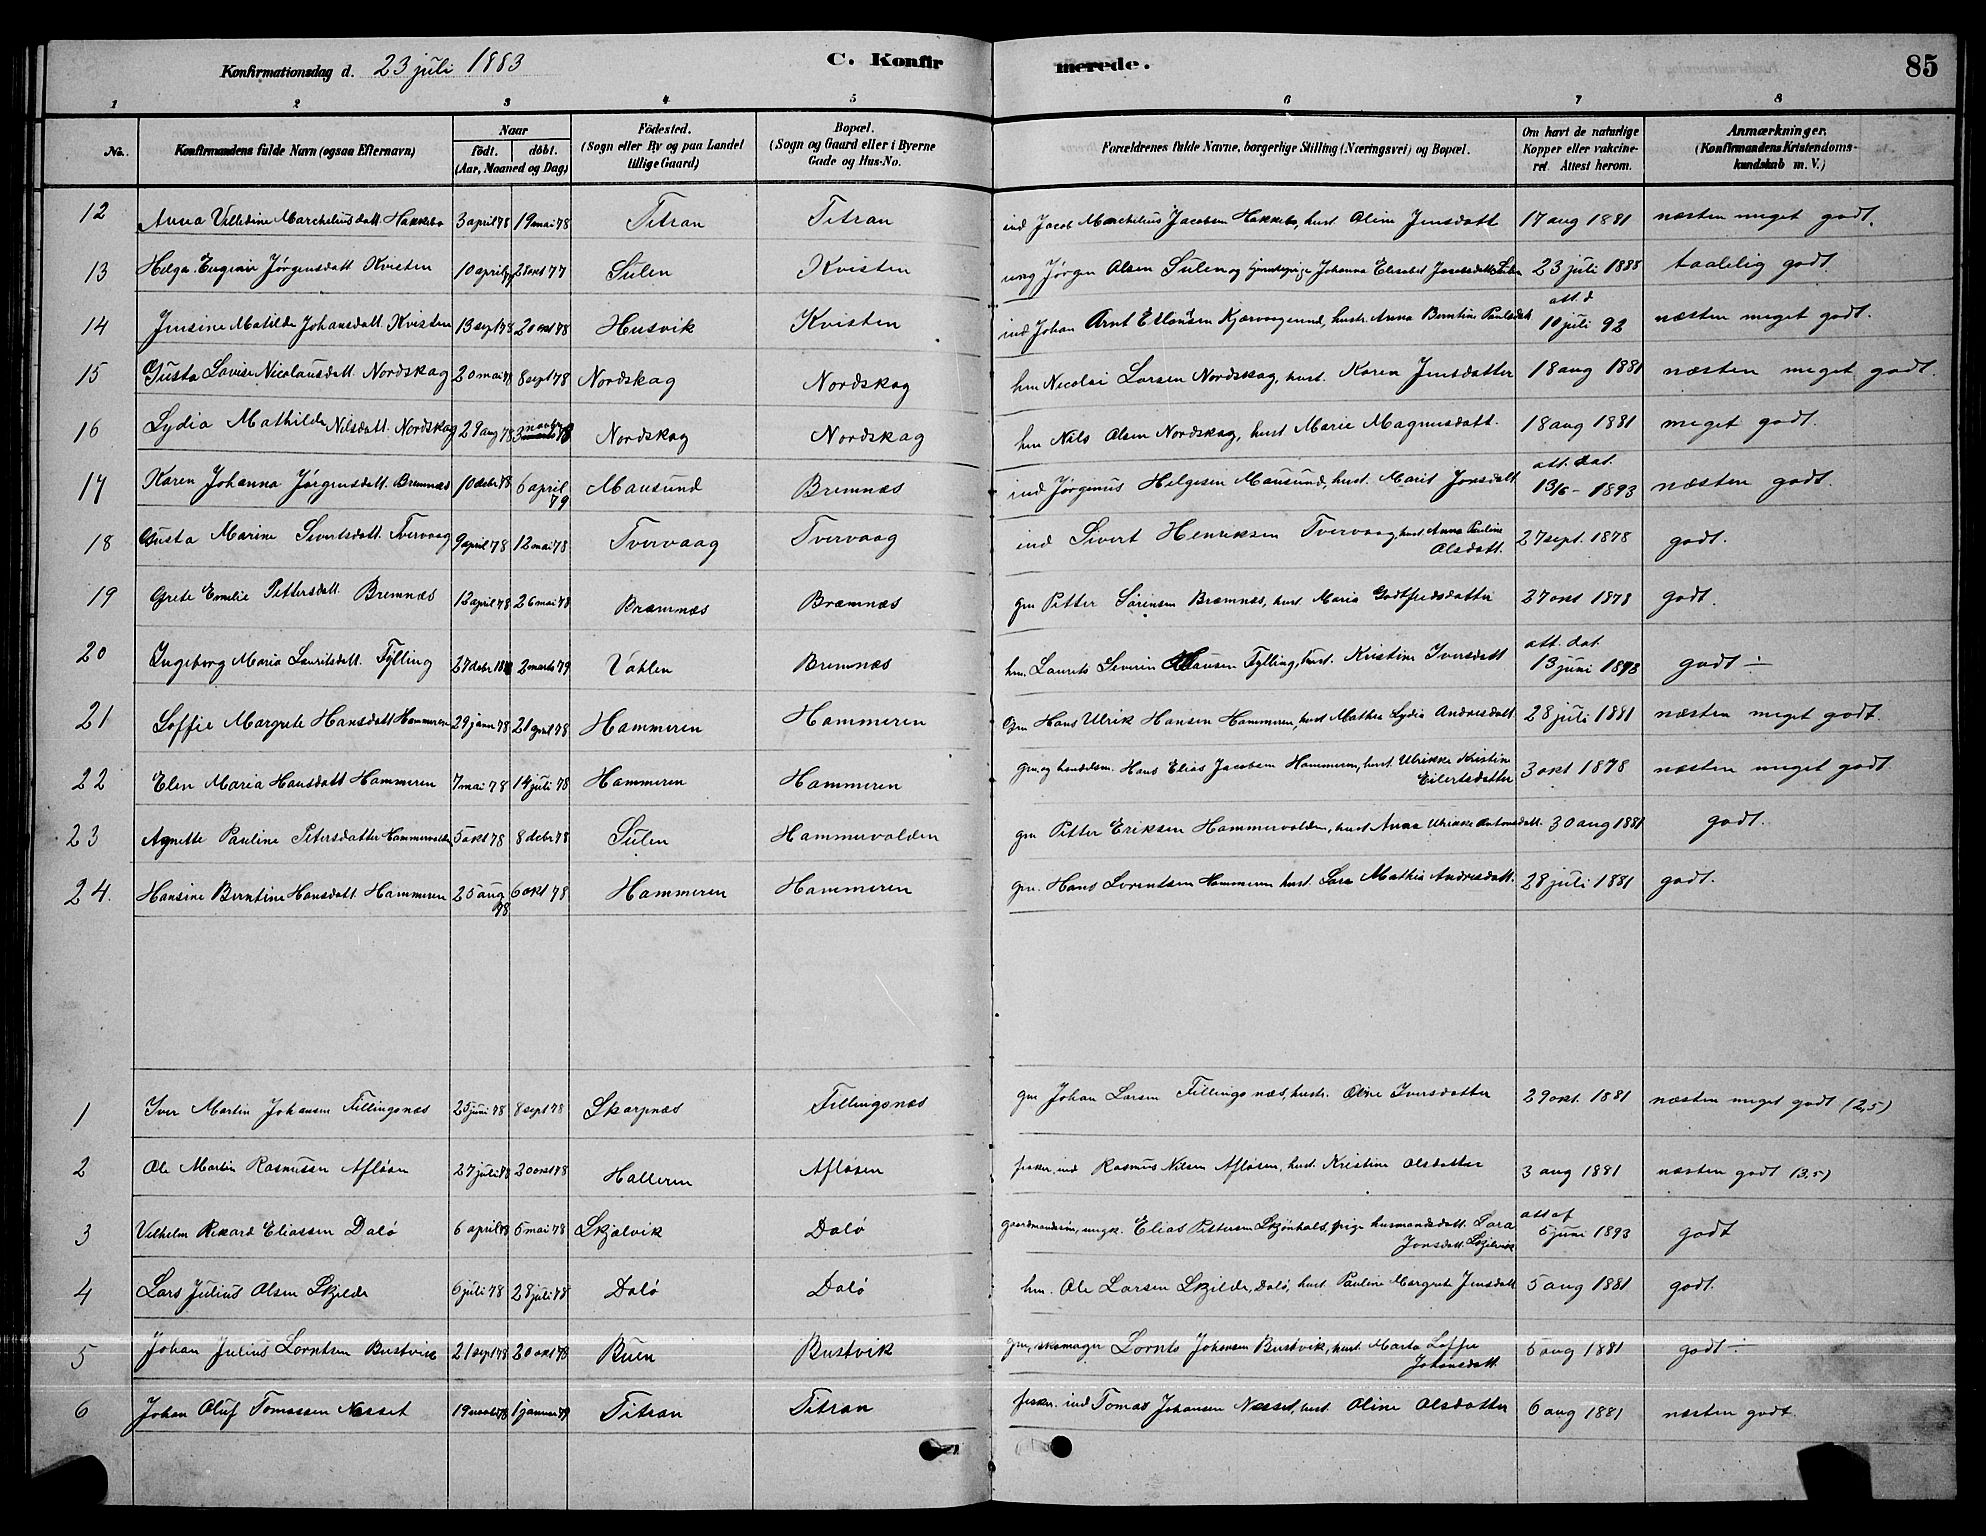 Konfirmationsdag d. 23 juli 1883 C. Konfirmerede. 85
1 2 3 4 5 6 7 8
No. Konfirmandens fulde Navn (ogsaa Efternavn) Naar født. døbt. (Aar, Maaned og Dag) Fødested. (Sogn eller By og paa Landet tillige Gaard) Bopæl. (Sogn og Gaard eller i Byerne Gade og Hus-No.) Forældrenes fulde Navne, borgerlige Stilling (Næringsvei) og Bopæl. Om havt de naturlige Kopper eller vakcineret. Attest herom. Anmærkninger. (Konfirmandens Kristendomskundskab m. V.)
12 Anna Villedine Marcheliusdatt. Hakkebo 3 april 78 19 mai 78 Titran Titran ind Jacob Marchelius Jacobsen Hakkebo, hust. Oline Jensdatt 17 aug 1881 næsten meget godt.
13 Helga Eugenie Jørgensdatt Kvisten 10 april 77 28 okt 77 Sulen Kvisten ung Jørgen Olsen Sulen og Johanna Elisabet 23 juli 1888 taalelig godt
14 Jensine Matilde Johansdatt. Kvisten 13 sept 78 20 okt 78 Husvik Kvisten ind Johan Arnt Kjærvaagsund, hustr. Anna Berntine Paulsdatt att. d 10 juli 92 næsten meget godt.
15 Gusta Lovise Nicolausdatt. Nordskag 20 mai 78 8 sept 78 Nordskag Nordskag hm Nicolai Larsen Nordskag, hust. Karen Jensdatter 18 aug 1881 næsten meget godt.
16 Lydia Mathilde Nilsdatt. Nordskag 29 aug 78 3 novbr 78 Nordskag Nordskag hm Nils Olsen Nordskag, hust Marie Magnusdatt. 18 aug 1881 meget godt.
17 Karen Johanna Jørgensdatt. Bremnæs 10 debr 78 6 april 79 Mausund Bremnæs ind Jørginus Helgesen Mausund, hust. Marit Jonsdatt att. dat. 13/6 - 1893 næsten godt.
18 Gusta Marine Sivertsdatt. Tvervaag 9 april 78 12 mai 78 Tvervaag Tvervaag ind Sivert Henriksen Tvervaag, hust Anna Pauline Olsdatt. 27 sept. 1878 godt.
19 Grete Emelie Pettersdatt. Bremnæs 12 april 78 26 mai 78 Bræmnæs Bræmnæs gm Petter Sørensen Bræmnæs, hust. Maria Godtfredsdatter 27 okt 1878 godt.
20 Ingeborg Maria Lauritsdatt. Fylling 27 debr 18 2 marts 79 Vahlen Bremnæs hm. Laurits Severin Fylling, hust. Kristine Iversdatt att. dat. 13 juni 1893 godt ÷
21 Soffie Margrete Hansdatt Hammeren 29 januar 78 21 april 78 Hammeren Hammeren gm Hans Ulrik Hansen Hammeren, hust Mathea Lydia Andreasdatt. 28 juli 1881 næsten meget godt.
22 Elen Maria Hansdatt Hammeren 7 mai 78 14 juli 78 Hammeren Hammeren gm, og handelsm. Hans Elias Jacobsen Hammeren, hust. Ulrikke Kristine Eilertsdatter 3 okt 1878 næsten meget godt
23 Agnette Pauline Petersdatter Hammervolden 5 okt 78 8 debr 78 Sulen Hammervolden gm Petter Eriksen Hammervolden, hust Anna Ulrikke Antonsdatt. 30 aug 1881 godt.
24. Hansine Berntine Hansdatt. Hammeren 25 aug 78 6 okt 78 Hammeren Hammeren gm. Hans Lorentsen Hammeren hust. Sara Mathea Andreasdatt. 28 juli 1881 godt.
1 Iver Martin Johansen Fillingsnæs 25 juni 78 8 sept 78 Skarpnæs Fillingsnæs gm Johan Larsen Fillingsnæs, hustr. Oline Iversdatter 29 okt. 1881 næsten meget godt (2,5)
2 Ole Martin Rasmussen Afløsen 27 juli 78 20 okt 78 Halleren Afløsen fisker, ind Rasmus Nilsen Afløsen, hust. Kristine Olsdatter 3 aug 1881 næsten godt (3,5)
3 Vilhelm Rikard Eliassen Dalø 6 april 78 5 mai 78 Skjælvik Dalø gaardmandssøn, ungk. Elias Pettersen Skjønhals, pige husmandsdatt. Sara Jonsdatt. Skjelvik att af 5 juni 1893 godt
4 Lars Julius Olsen Skjelde 6 juli 78 28 juli 78 Dalø Dalø hm. Ole Larsen Skjelde, Dalø, hust. Pauline Margrete Jensdatt 5 aug 1881 godt.
5 Johan Julius Lorntsen Bustvik 21 sept 78 20 okt 78 Buen Bustvik gm, skomager Lornts Johansen Bustvik, hust. Marta Soffie Johansdatt 5 aug 1881 godt ÷
6 Johan Oluf Tomassen Nesset 19 novbr 78 1 januar 79 Titran Titran fisker. ind Tomas Johansen Nesset, hust. Oline Olsdatter 6 aug 1881 næsten godt.